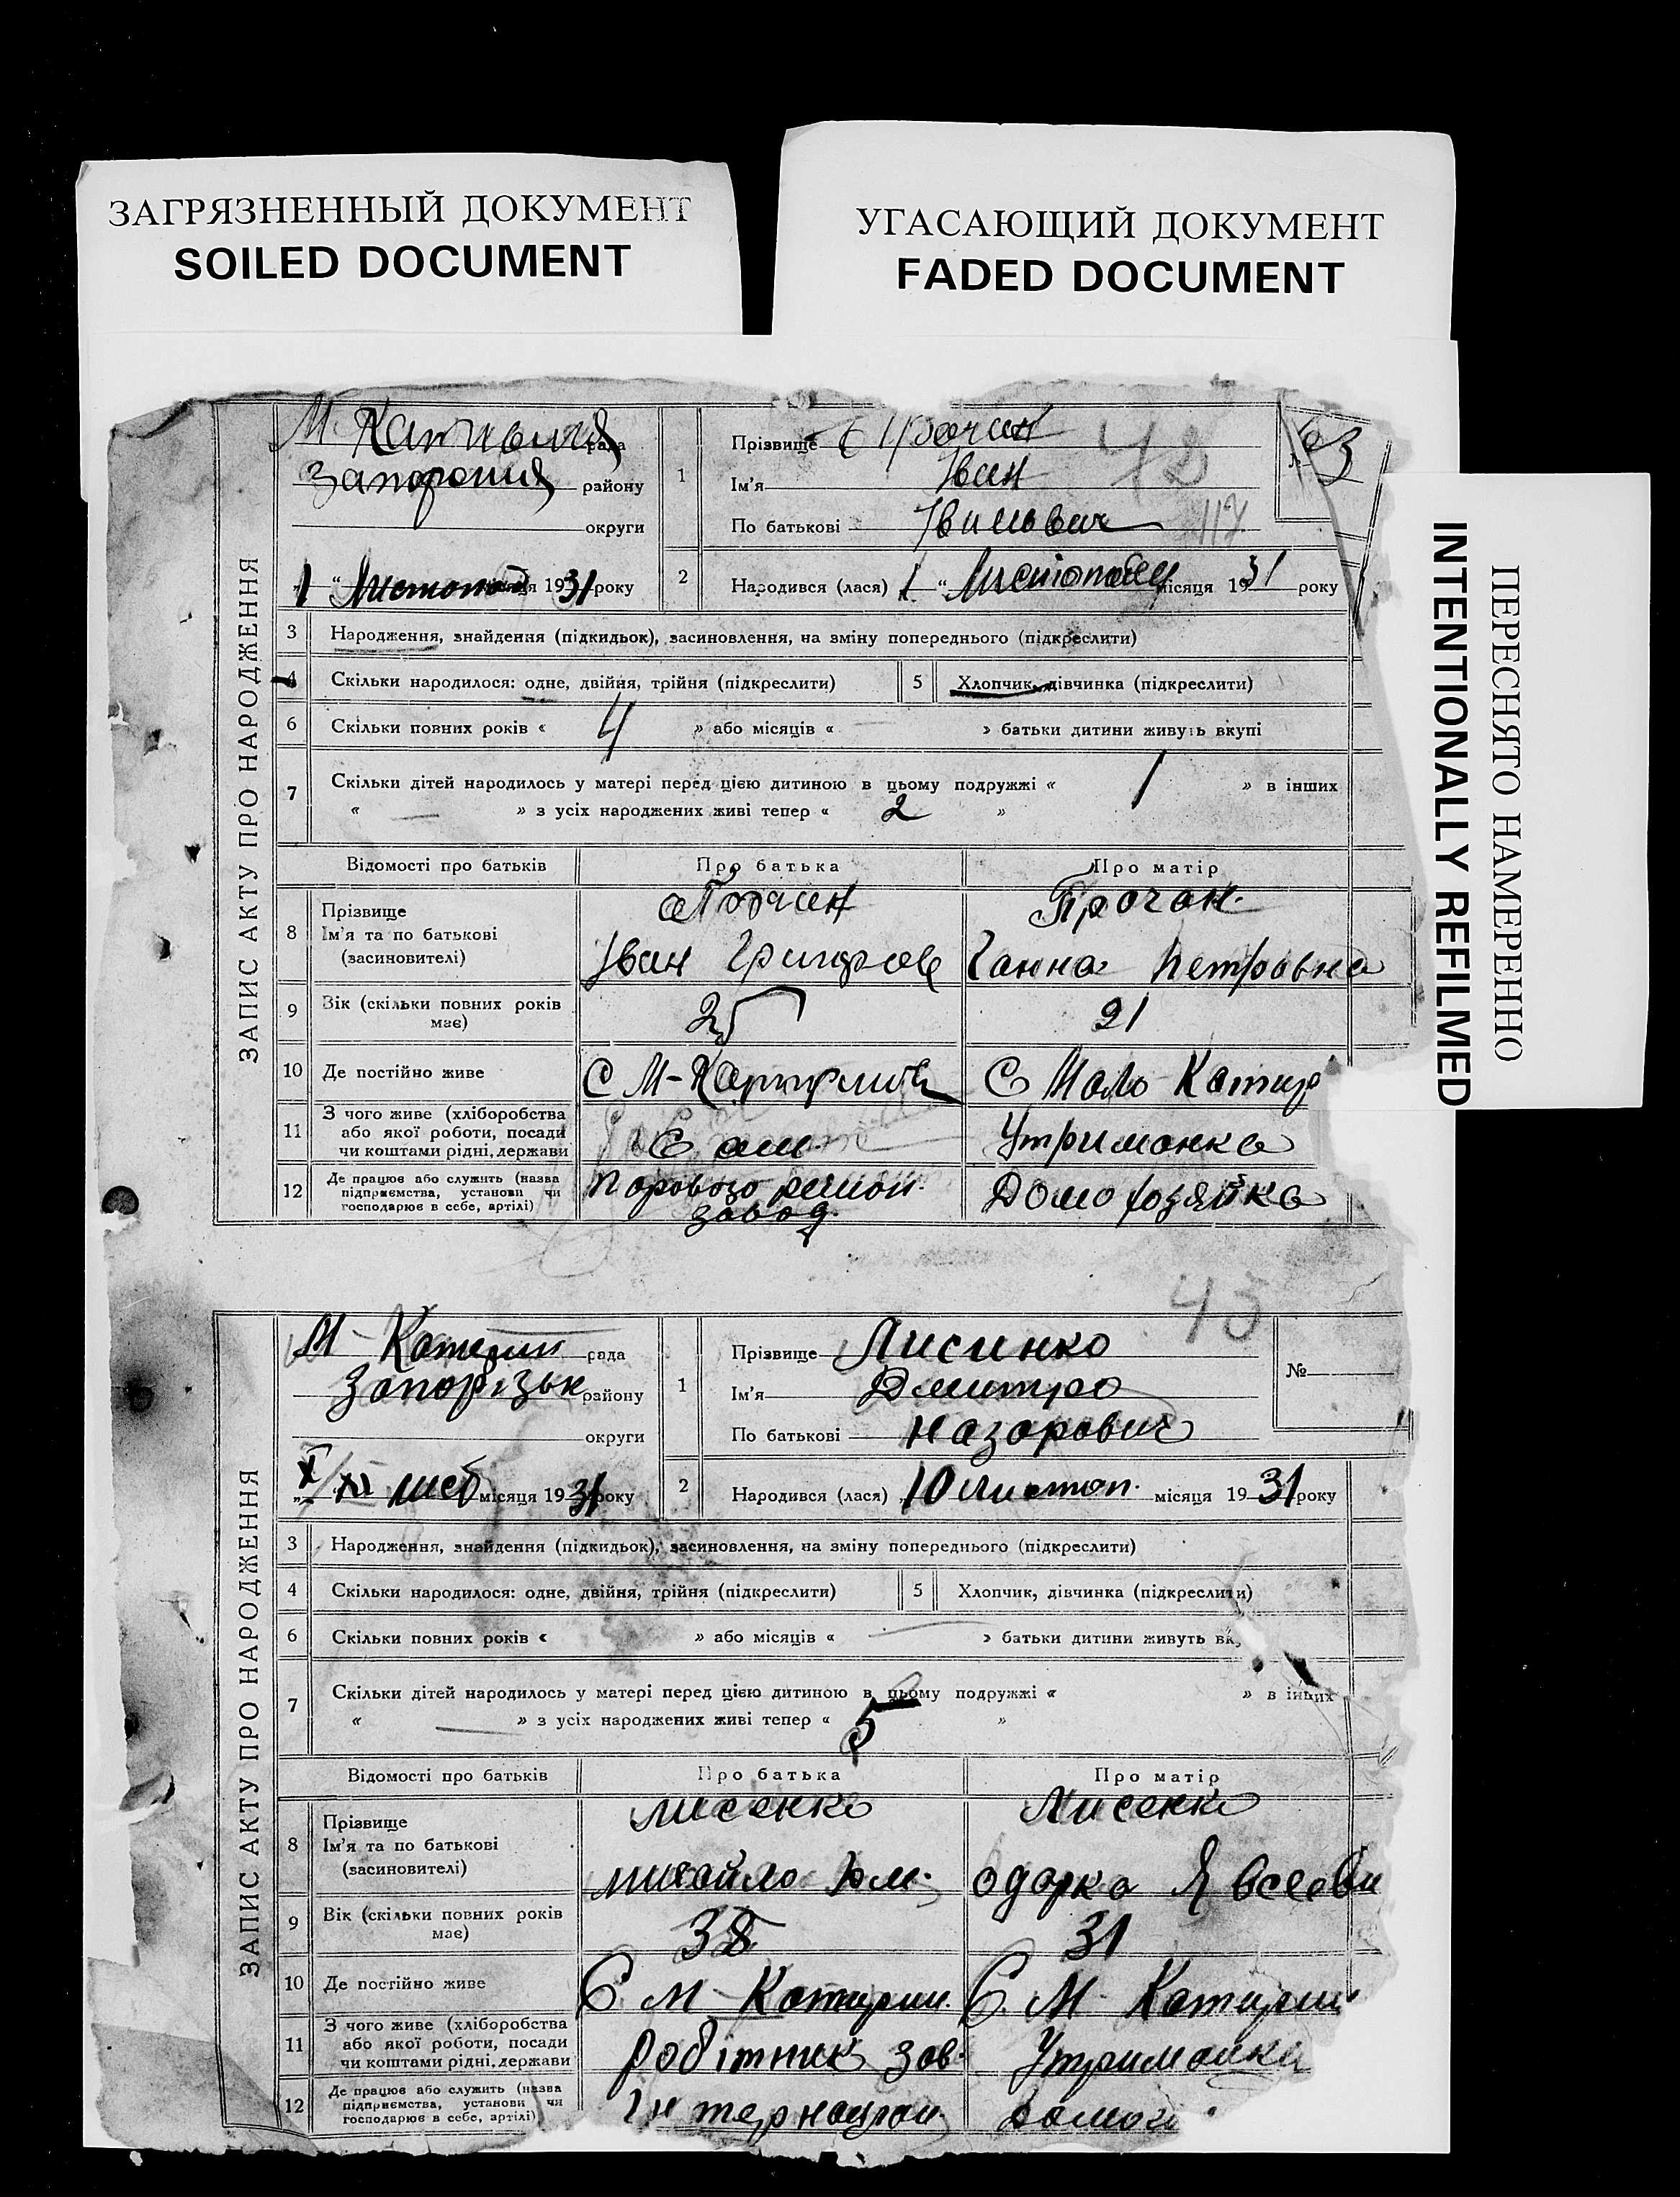 ЗАГРЯЗНЕННЫЙ ДОКУМЕНТ
SOILED DOCUMENT
УГАСАЮЩИЙ ДОКУМЕНТ
FADED DOCUMENT
ПЕРЕСНЯТО НАМЕРЕННО
INTENTIONALLY REFILMED
ЗАПИС АКТУ ПРО НАРОДЖЕННЯ
М. рада
району
округи
1 " Листопад місяця 1931 року
1 Прізвище
Ім'я Іван
По батькові 117
42
№ 3
2 Народився (лася) 1 " Листопада місяця 1931 року
3 Народження, знайдення (підкидьок), засиновлення, на зміну попереднього (підкреслити)
4 Скільки народилося: одне, двійня, трійня (підкреслити) 5 Хлопчик, дівчинка (підкреслити)
6 Скільки повних років « 4 » або місяців « — » батьки дитини живуть вкупі
7 Скільки дітей народилось у матері перед цією дитиною в цьому подружжі « 1 » в інших
« — » з усіх народжених живі тепер « 2 »
Відомості про батьків Про батька Про матір
8 Прізвище
Ім'я та по батькові Іван Ганна Петровна
(засиновителі)
9 Вік (скільки повних років 25 21
має)
10 Де постійно живе С М- С Мало Катир
11 З чого живе (хліборобства
або якої роботи, посади Утриманка
чи коштами рідні, держави
12 Де працює або служить (назва Паровозо ремон.
підприємства, установи чи завод. Домохозяйка
господарює в себе, артілі)
43
ЗАПИС АКТУ ПРО НАРОДЖЕННЯ
М- рада
Запорізьк району
округи
місяця 1931 року
1 Прізвище Лисинко
Ім'я Дмитро
По батькові Назарович
№
2 Народився (лася) 10 Листоп. місяця 1931 року
3 Народження, знайдення (підкидьок), засиновлення, на зміну попереднього (підкреслити)
4 Скільки народилося: одне, двійня, трійня (підкреслити) 5 Хлопчик, дівчинка (підкреслити)
6 Скільки повних років « » або місяців « — » батьки дитини живуть вк
7 Скільки дітей народилось у матері перед цією дитиною в цьому подружжі « » в інших
« — » з усіх народжених живі тепер « 5 »
Відомості про батьків Про батька Про матір
8 Прізвище Лисенко Лисенко
Ім'я та по батькові Михайло Одарка
(засиновителі)
9 Вік (скільки повних років 38 31
має)
10 Де постійно живе С М- Катирин. С М- Катирин
11 З чого живе (хліборобства
або якої роботи, посади Робітник зав. Утриманка
чи коштами рідні, держави
12 Де працює або служить (назва
підприємства, установи чи Інтернацион.
господарює в себе, артілі)